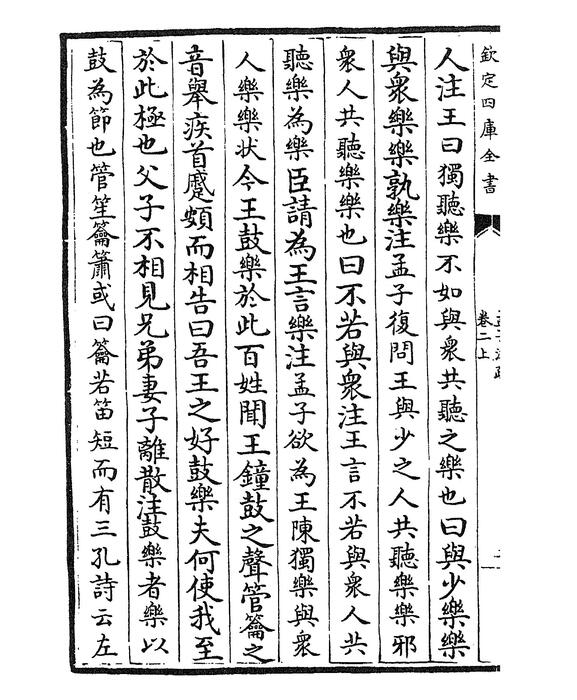 欽定四庫全書
卷二上
人注王曰獨聽樂不如與衆共聽之樂也曰與少樂樂
與衆樂樂孰樂注孟子復問王與少之人共聽樂樂邪
衆人共聽樂樂也曰不若與衆注王言不若與衆人共
聽樂為樂臣請為王言樂注孟子欲為王陳獨樂與衆
人樂樂状今王鼓樂於此百姓聞王鐘鼓之聲管籥之
音舉疾首蹙頞而相告曰吾王之好鼓樂夫何使我至
於此極也父子不相見兄弟妻子離散注鼓樂者樂以
鼓為節也管笙籥簫或曰籥若笛短而有三孔詩云左